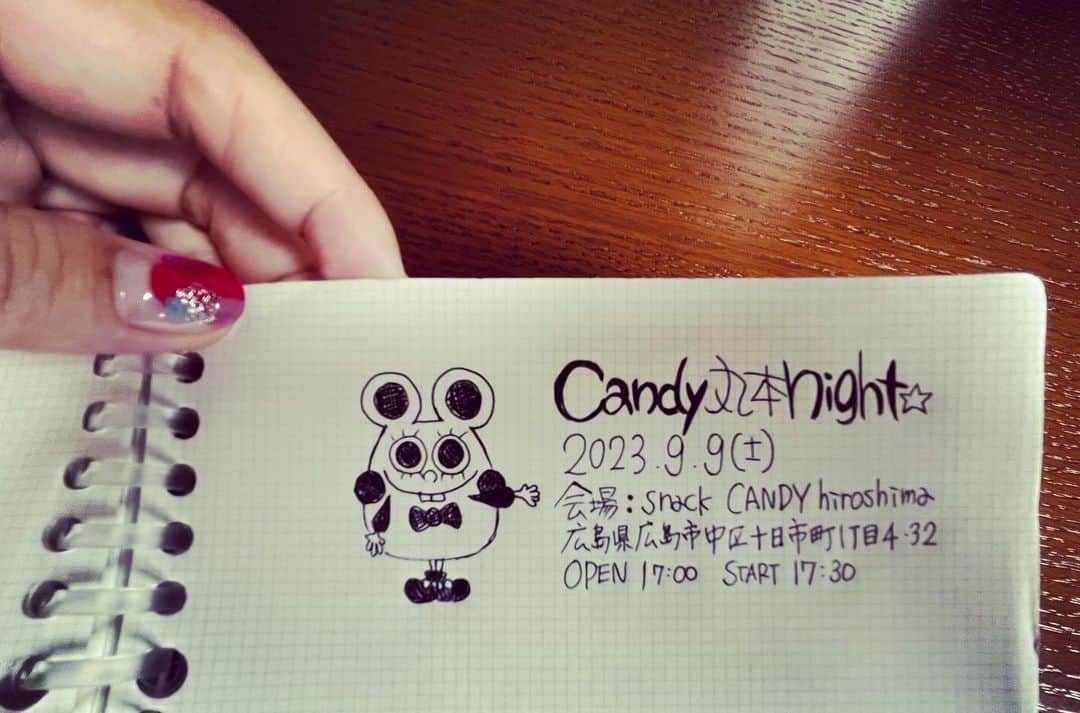 Candy丸本night☆
2023.9.9(土)
会場:snack CANDY hiroshima
広島県広島市中区十日市町1丁目4-32
OPEN 17:00 START 17:30